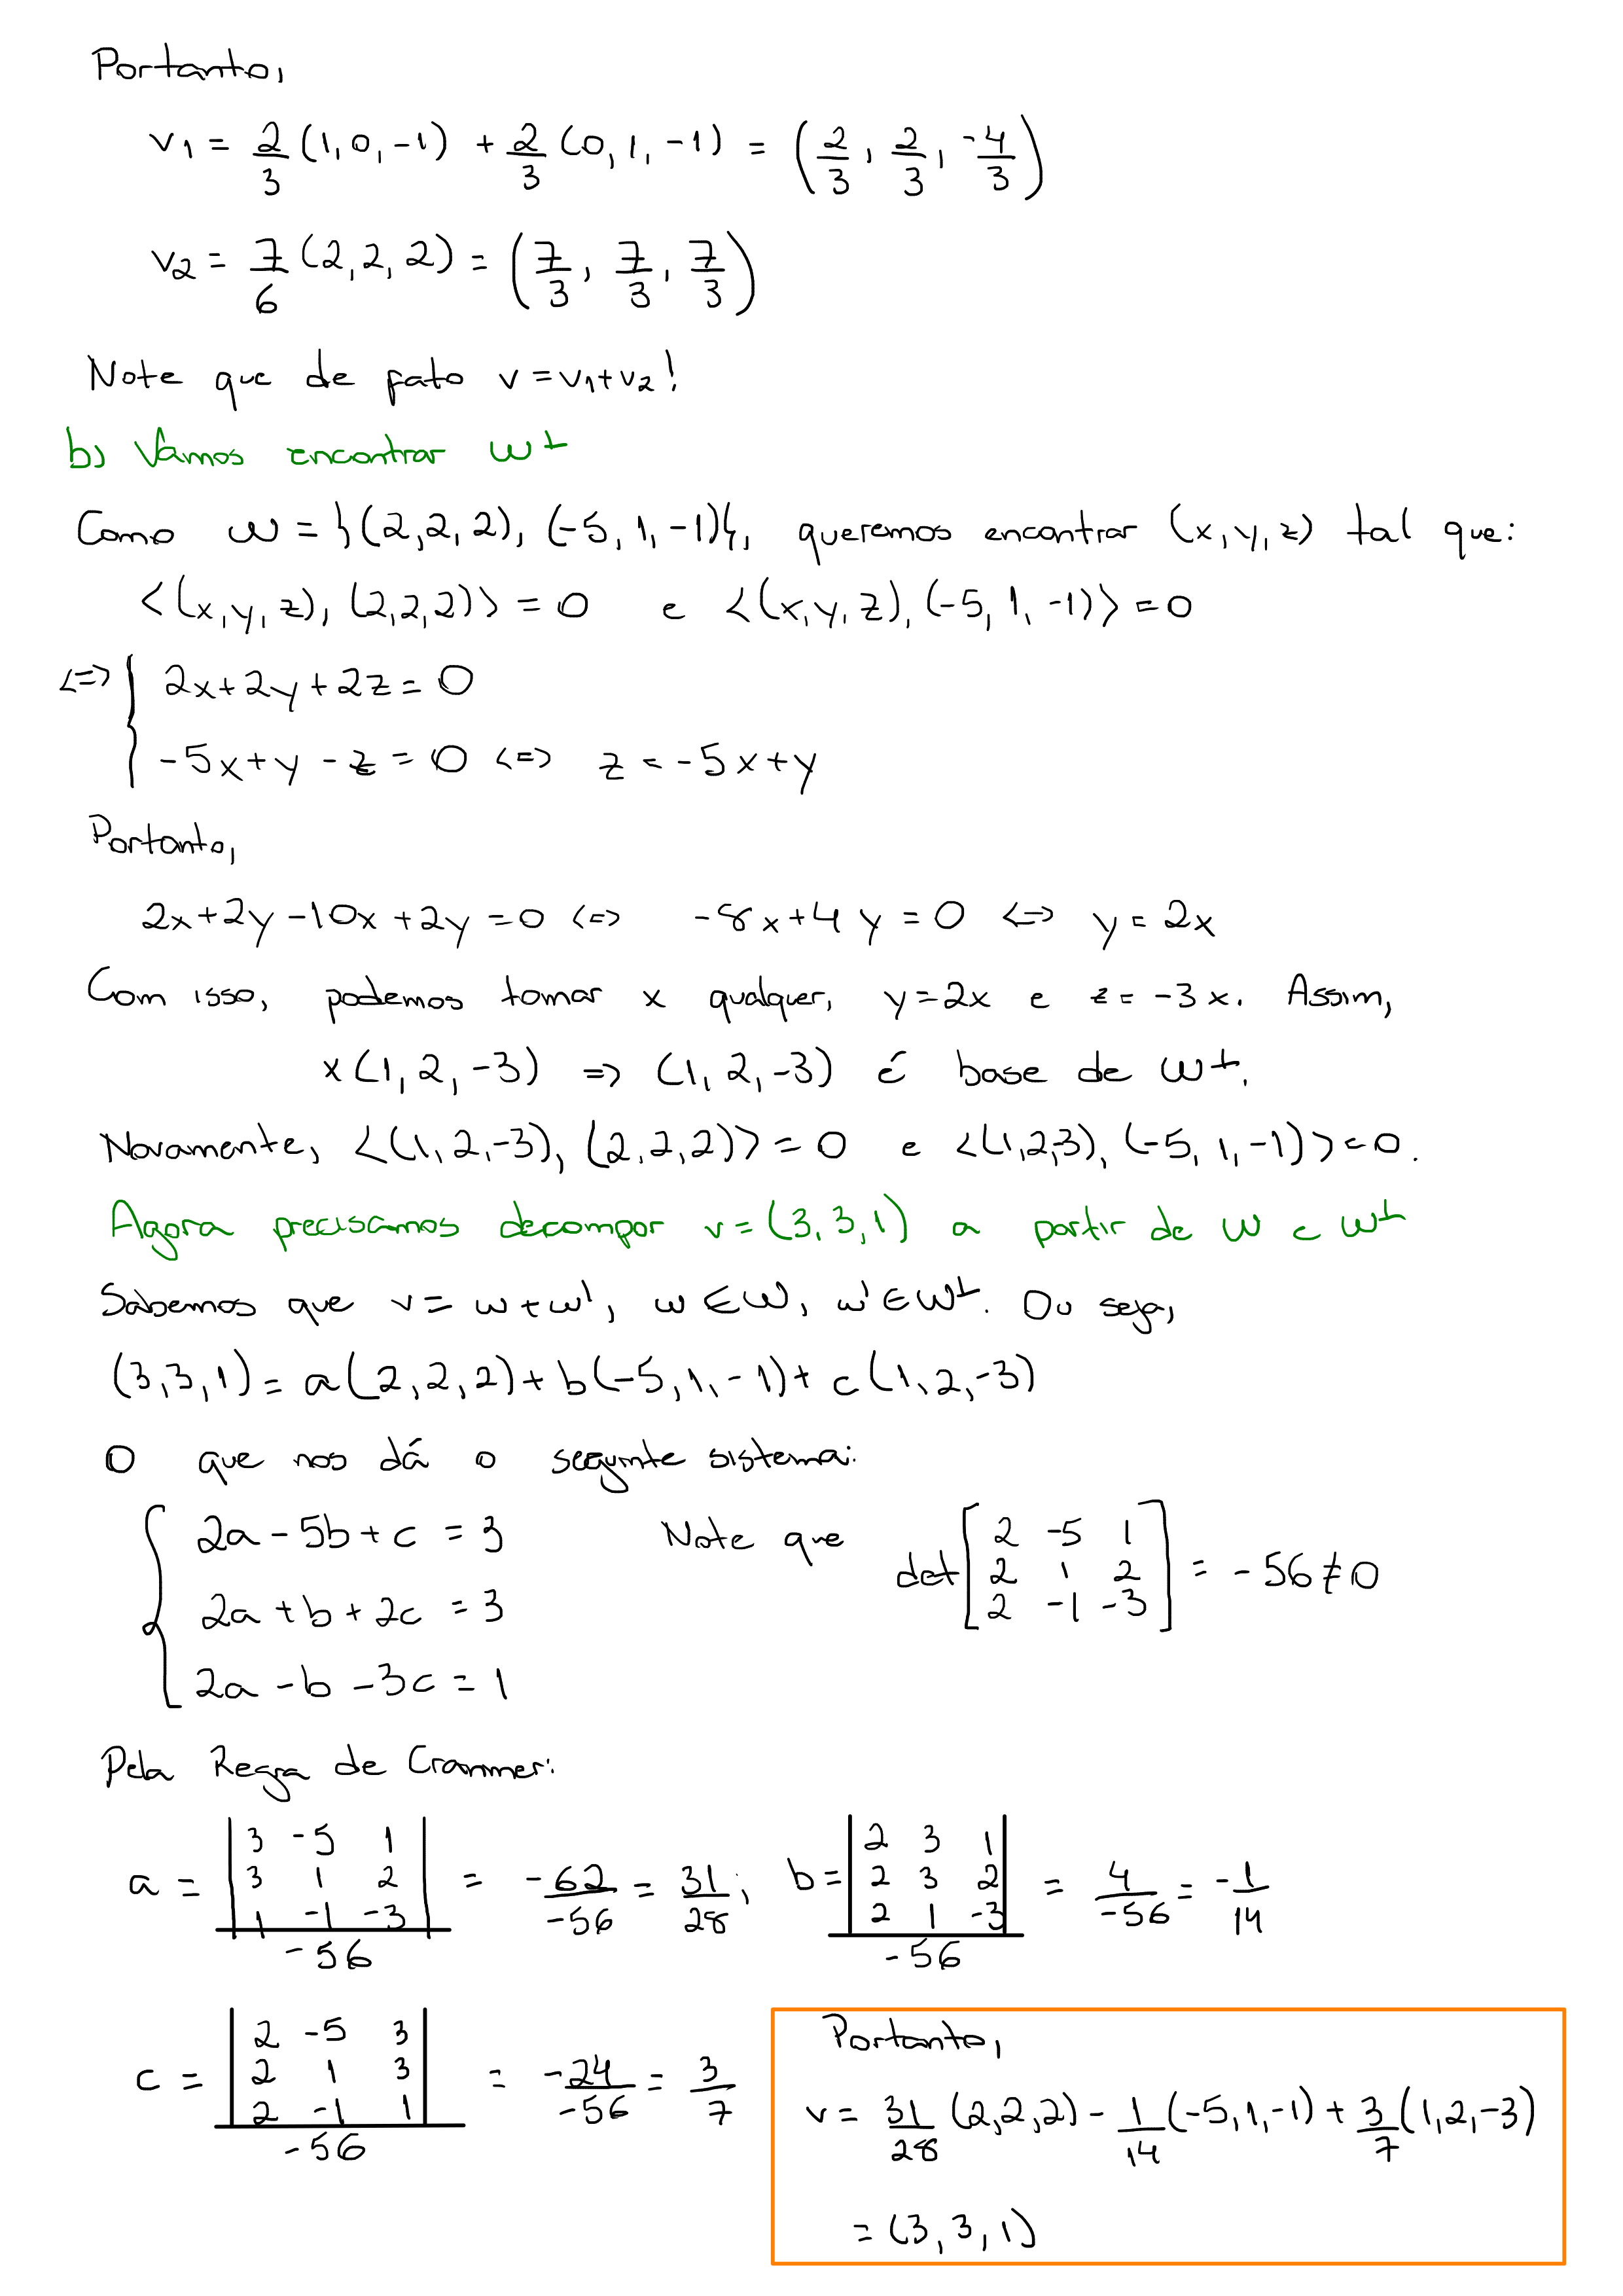 Portanto,
v₁ = 2/3 (1, 0, -1) + 2/3 (0, 1, -1) = (2/3, 2/3, -4/3)
v₂ = 7/6 (2, 2, 2) = (7/3, 7/3, 7/3)
Note que de fato v = v₁+v₂!
b) Vamos encontrar W⊥
Como W = {(2,2,2), (-5, 1, -1)}, queremos encontrar (x, y, z) tal que:
<(x, y, z), (2,2,2)> = 0 e <(x, y, z), (-5, 1, -1)> = 0
<=> { 2x+2y+2z = 0
-5x+y-z = 0 <=> z = -5x+y
Portanto,
2x+2y-10x+2y = 0 <=> -8x+4y = 0 <=> y = 2x
Com isso, podemos tomar x qualquer, y=2x e z = -3x. Assim,
x(1, 2, -3) => (1, 2, -3) é base de W⊥.
Novamente, <(1, 2, -3), (2,2,2)> = 0 e <(1,2,-3), (-5, 1, -1)> = 0.
Agora precisamos decompor v = (3, 3, 1) a partir de W e W⊥
Sabemos que v = w + w', w ∈ W, w' ∈ W⊥. Ou seja,
(3,3,1) = a(2,2,2) + b(-5,1,-1) + c(1,2,-3)
O que nos dá o seguinte sistema:
{ 2a - 5b + c = 3
2a + b + 2c = 3
2a - b - 3c = 1
Note que det [2 -5 1
2 1 2
2 -1 -3] = -56 ≠ 0
Pela Regra de Crammer:
a = |3 -5 1
3 1 2
1 -1 -3| / -56 = -62/-56 = 31/28;
b = |2 3 1
2 3 2
2 1 -3| / -56 = 4/-56 = -1/14
c = |2 -5 3
2 1 3
2 -1 1| / -56 = -24/-56 = 3/7
Portanto,
v = 31/28 (2,2,2) - 1/14 (-5,1,-1) + 3/7 (1,2,-3)
= (3, 3, 1)